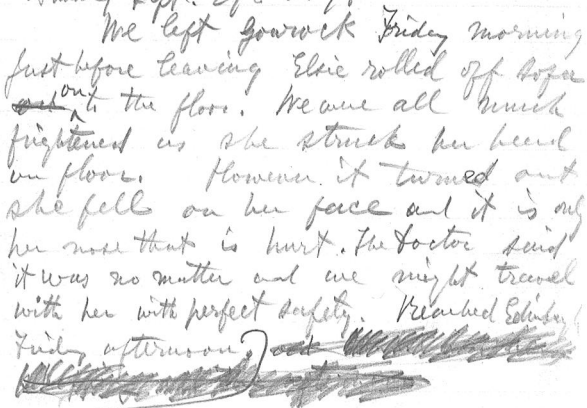 We left Gourock Friday morning
Just before leaving Elsie rolled off sofa
on to the floor. We were all much
frightened as she struck her head
on floor. However it turned out
she fell on her face and it is only
her nose that is hurt. The Doctor said
it was no matter and we might travel
with her with perfect safety. Reached
Friday afternoon,